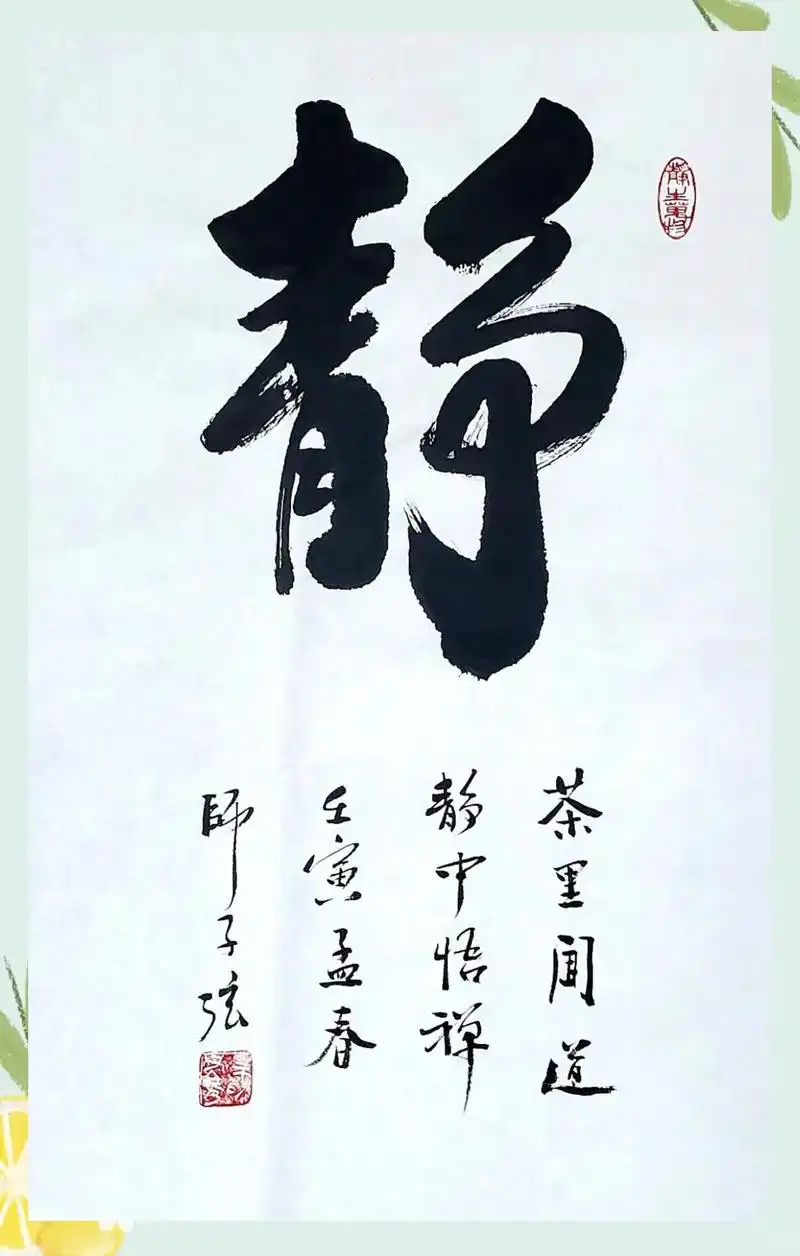 静
茶里闻道
静中悟禅
壬寅孟春
師子弦